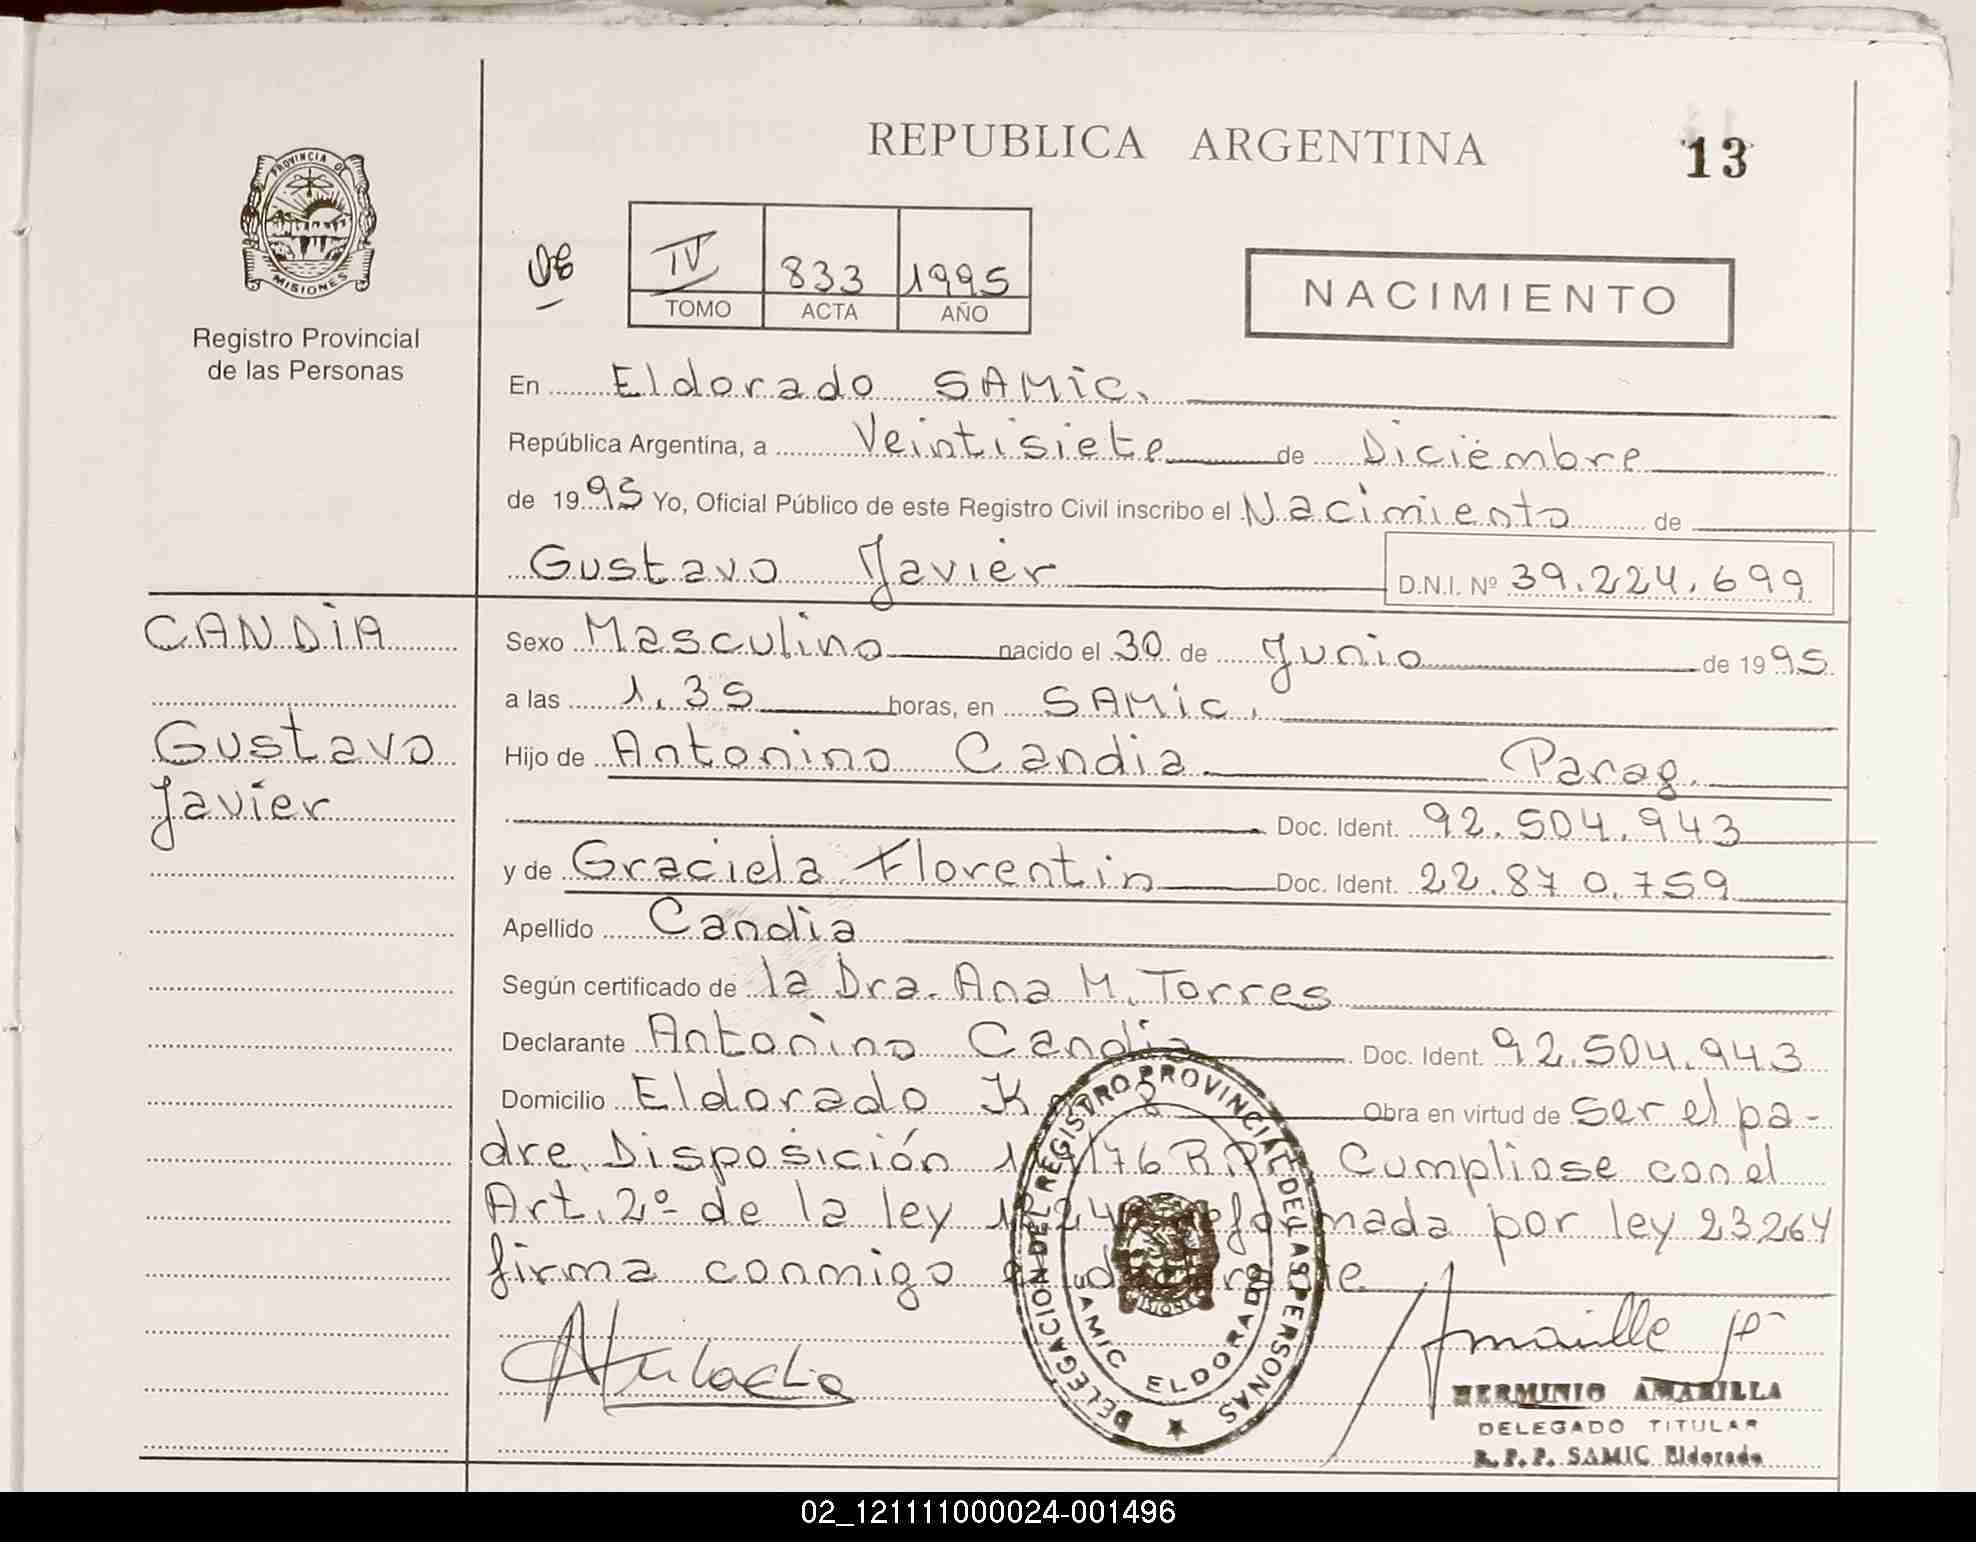 REPUBLICA ARGENTINA
13
PROVINCIA DE MISIONES
Registro Provincial
de las Personas
IV 833 1995
TOMO ACTA AÑO
NACIMIENTO
En Eldorado SAMIC.
República Argentina, a Veintisiete de Diciembre
de 1995 Yo, Oficial Público de este Registro Civil inscribo el Nacimiento de
Gustavo Javier D.N.I. Nº 39.224.699
CANDIA
Gustavo
Javier
Sexo Masculino nacido el 30 de Junio de 1995
a las 1,35 horas, en SAMIC.
Hijo de Antonino Candia Parag.
Doc. Ident. 92.504.943
y de Graciela Florentin Doc. Ident. 22.870.759
Apellido Candia
Según certificado de la Dra. Ana M. Torres
Declarante Antonino Candia Doc. Ident. 92.504.943
Domicilio Eldorado Obra en virtud de ser el pa-
dre. Disposición Cumpliose con el
Art. 2º de la ley por ley 23264
firma conmigo
DELEGACION DEL REGISTRO PROVINCIAL DE LAS PERSONAS
SAMIC ELDORADO
MISIONES
HERMINIO AMARILLA
DELEGADO TITULAR
R.P.P. SAMIC Eldorado
02_121111000024-001496